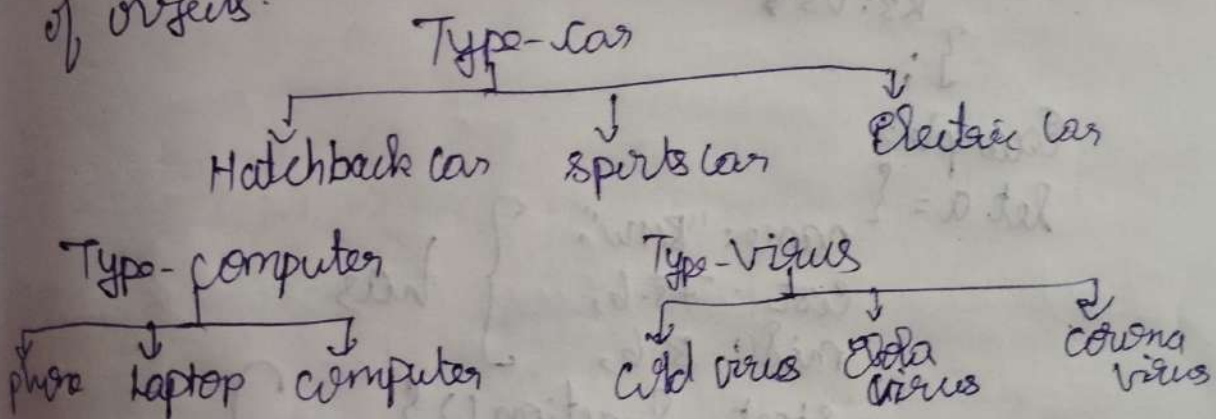 of objects.
Type-car
Hatchback car sports car Electric car
Type-computer Type-virus
phone Laptop computer cold virus Ebola virus corona virus